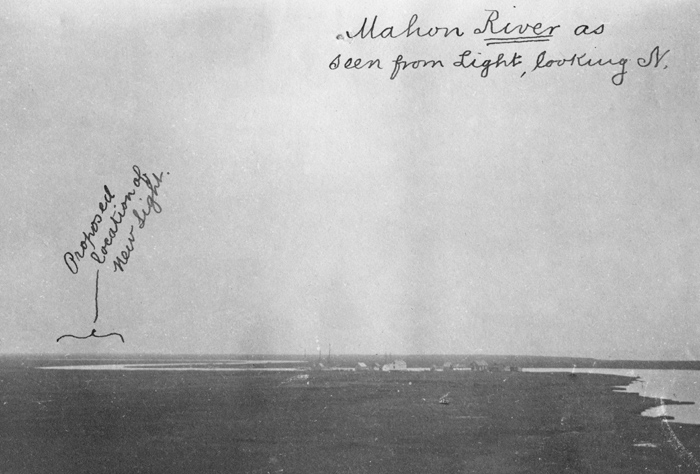 Mahon River as
seen from Light, looking N.
Proposed
location of
New Light.